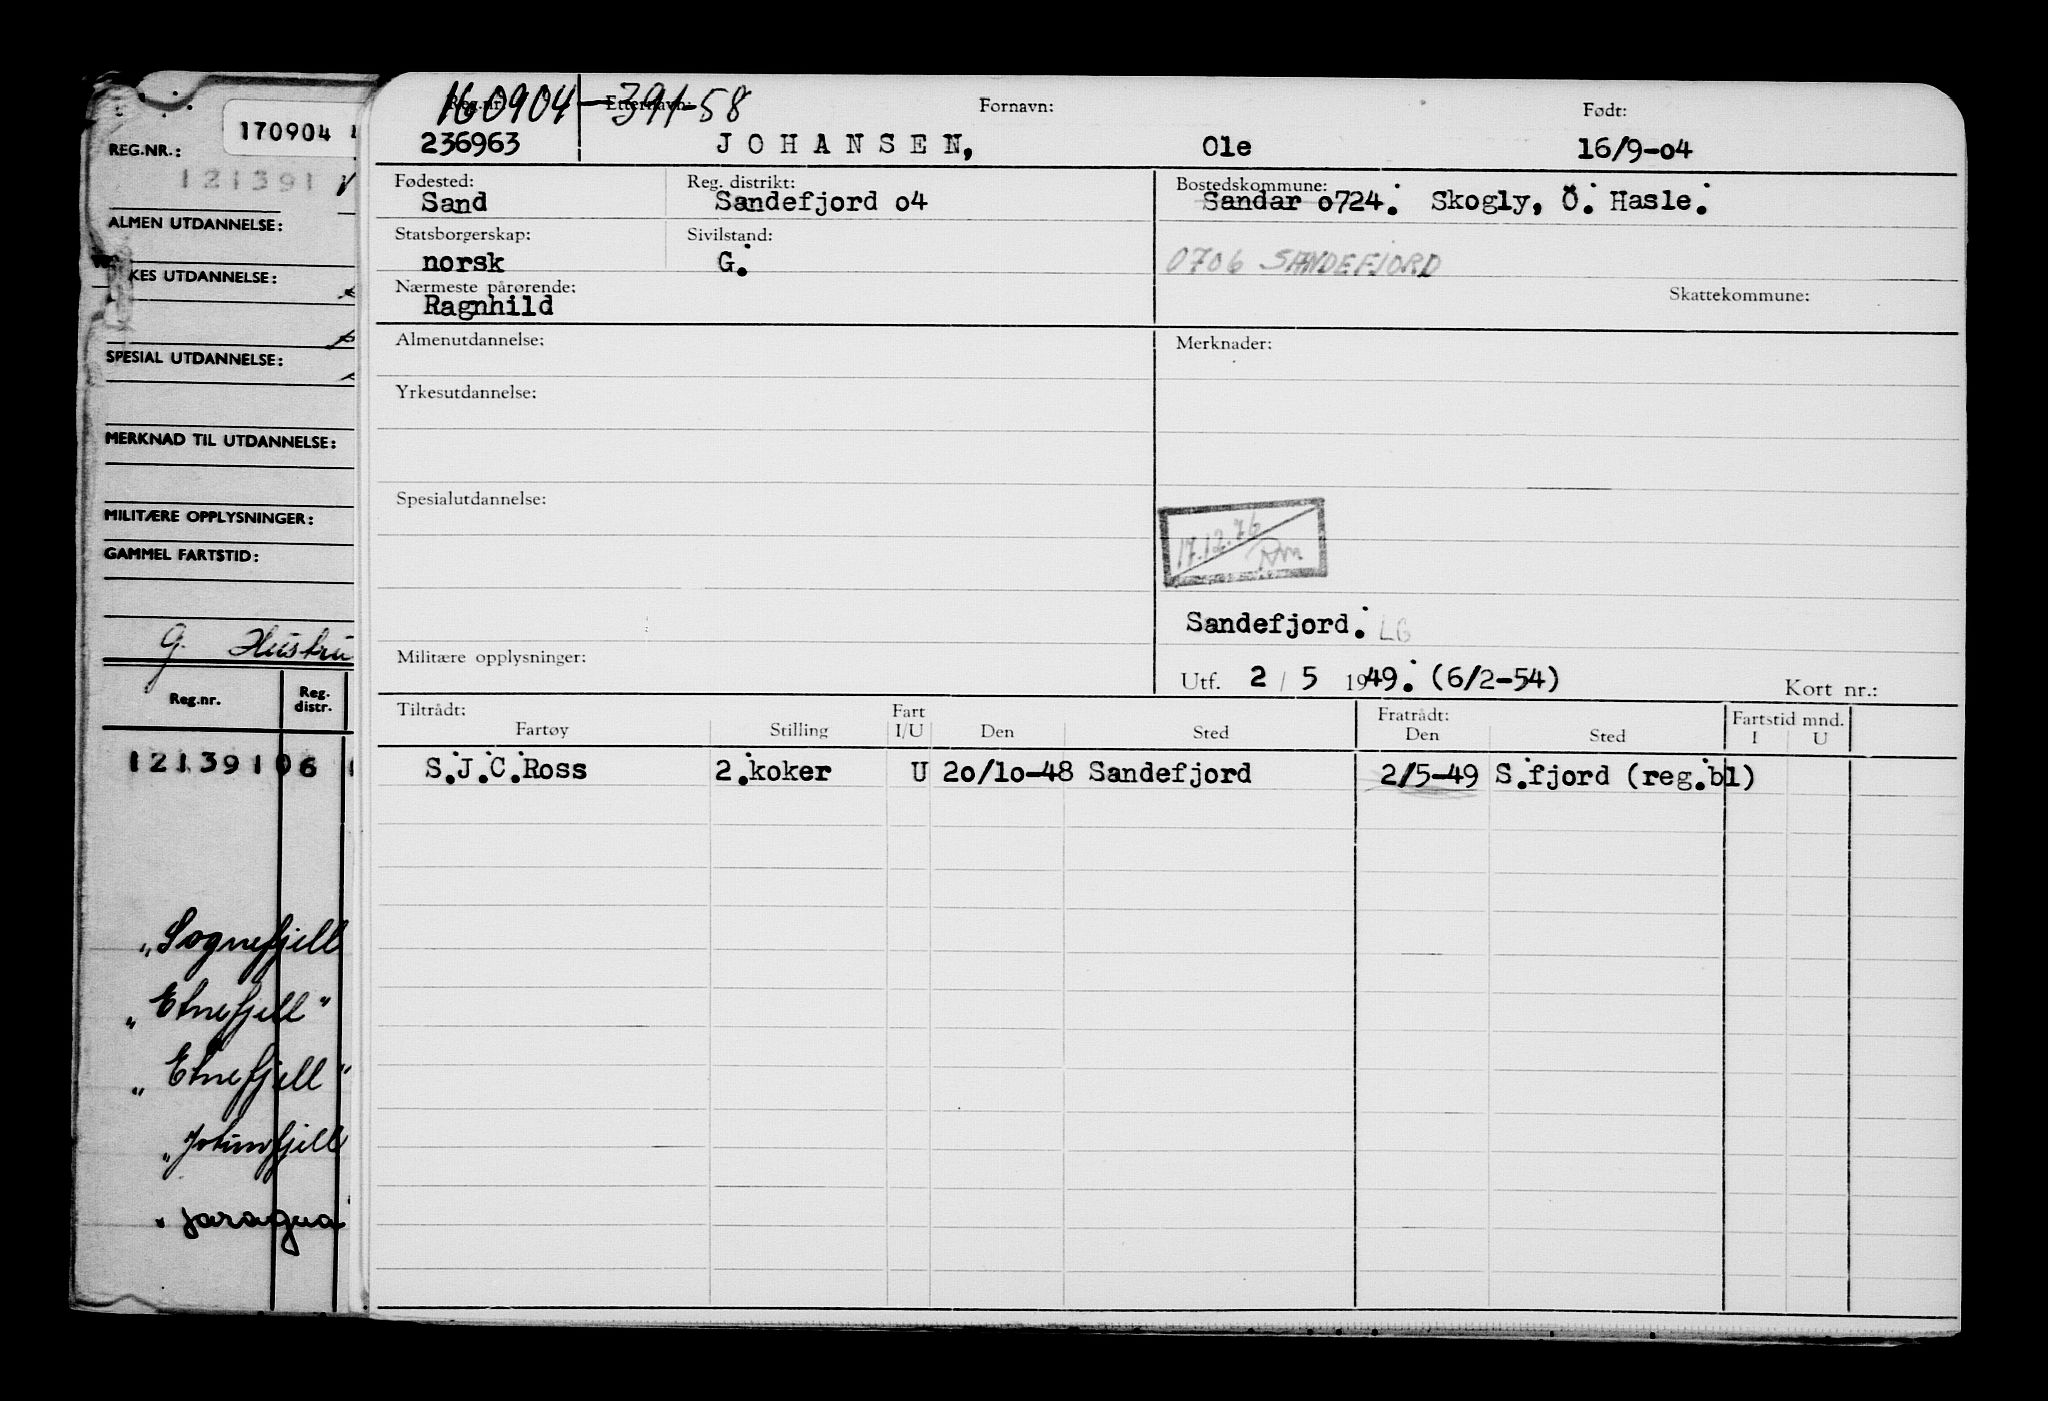 170904
REG.NR.:
121391
ALMEN UTDANNELSE:
KES UTDANNELSE:
SPESIAL UTDANNELSE:
MERKNAD TIL UTDANNELSE:
MILITÆRE OPPLYSNINGER:
GAMMEL FARTSTID:
G. Hustru
Reg.nr. Reg. distr.
121391 06
"Sognefjell
"Etnefjell"
"Etnefjell"
"Jotunfjell
" Jaragua
160904-391-58
Reg.nr. Etternavn: Fornavn: Født:
236963 JOHANSEN, Ole 16/9-o4
Fødested: Reg. distrikt: Bostedskommune:
Sand Sandefjord o4 Sandar o724. Skogly, Ö. Hasle.
Statsborgerskap: Sivilstand:
norsk G. 0706 SANDEFJORD
Nærmeste pårørende: Skattekommune:
Ragnhild
Almenutdannelse: Merknader:
Yrkesutdannelse:
Spesialutdannelse:
17.12.76
Sandefjord. LG
Militære opplysninger:
Utf. 2 / 5 1949. (6/2-54) Kort nr.:
Tiltrådt: Fart Fratrådt: Fartstid mnd.
Fartøy Stilling I/U Den Sted Den Sted I U
S.J.C.Ross 2.koker U 2o/1o-48 Sandefjord 2/5-49 S.fjord (reg.bl)